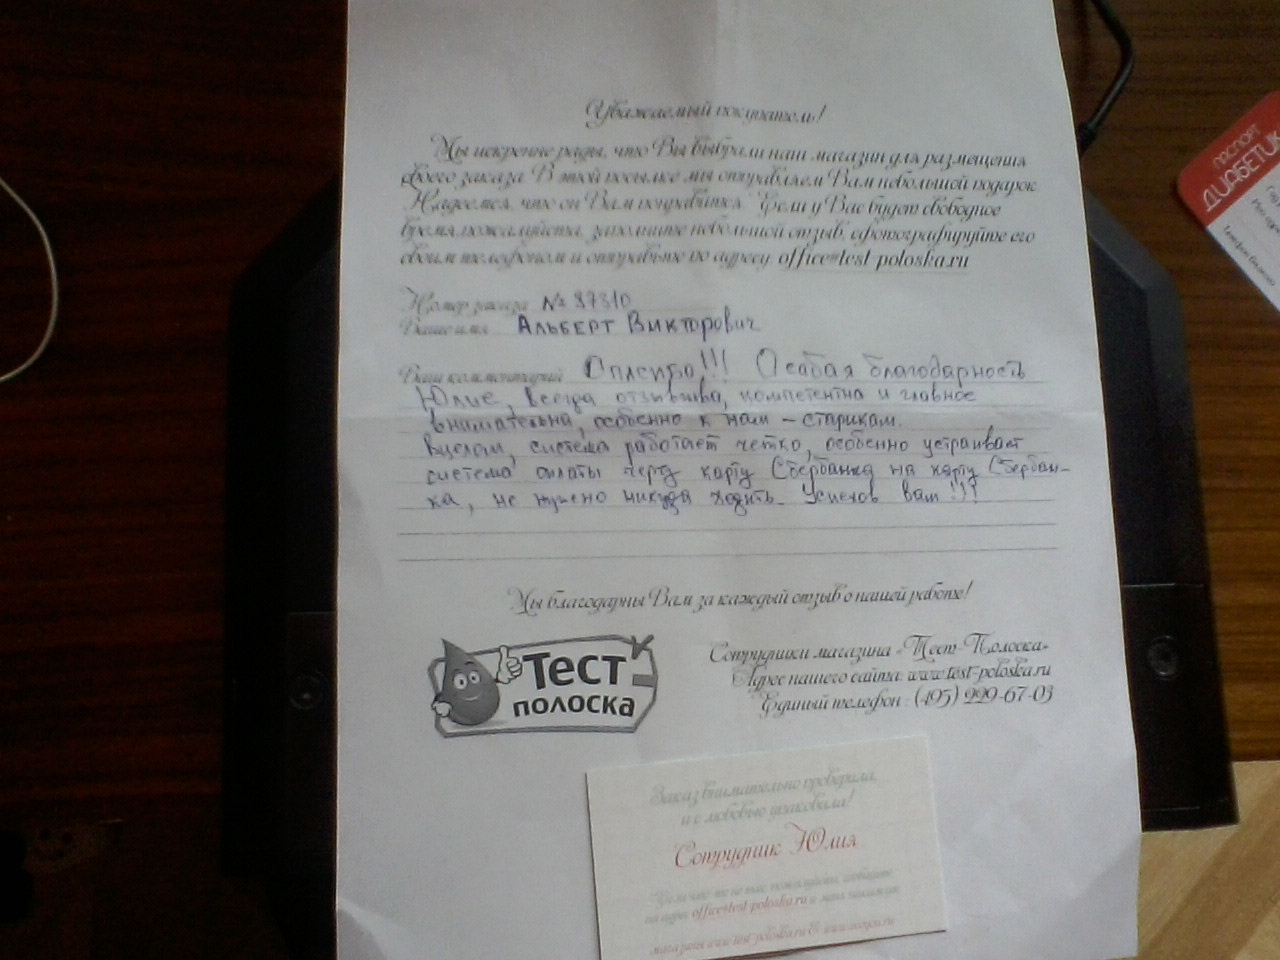 Уважаемый покупатель!
Мы искренне рады, что Вы выбрали наш магазин для размещения
своего заказа. В этой посылке мы отправляем Вам небольшой подарок.
Надеемся, что он Вам понравится. Если у Вас будет свободное
время, пожалуйста, заполните небольшой отзыв, сфотографируйте его
своим телефоном и отправьте по адресу office@test-poloska.ru
Номер заказа № 87310
Ваше имя Альберт Викторович
Ваш комментарий Спасибо!!! Особая благодарность
Юлие, всегда отзывчива, компетентна и главное
внимательна, особенно к нам - старикам.
Вцелом, система работает четко, особенно устраивает
система оплаты через карту Сбербанка на карту Сбербан-
ка, не нужно никуда ходить. Успехов вам!!!
Мы благодарны Вам за каждый отзыв о нашей работе!
Тест-
полоска
Сотрудники магазина «Тест-Полоска»
Адрес нашего сайта: www.test-poloska.ru
Единый телефон: (495) 999-67-03
Заказ внимательно проверила
и с любовью упаковала!
Сотрудник Юлия
Если что-то не так, пожалуйста, сообщите
на адрес office@test-poloska.ru
магазины www.test-poloska.ru &
ПАСПОРТ
ДИАБЕТИК